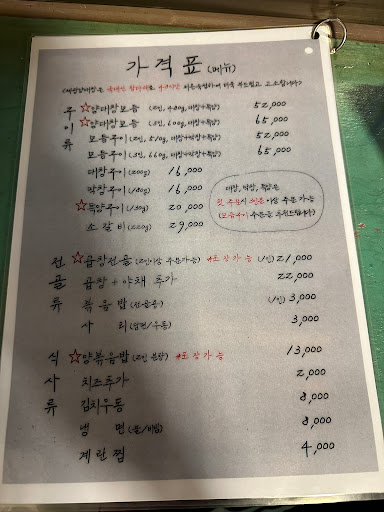 가격표 (메뉴)
구이류
☆양대창모듬 (2인, 480g, 대창+특양) 52,000
☆양대창모듬 (3인, 600g, 대창+특양) 65,000
모듬구이 (2인, 510g, 대창+막창+특양) 52,000
모듬구이 (3인, 660g, 대창+막창+특양) 65,000
대창구이 (200g) 16,000
막창구이 (180g) 16,000
☆특양구이 (130g) 20,000
소갈비 (220g) 29,000
대창, 막창, 특양은
첫 주문시 이상 주문 가능
(모듬구이 주문을 추천드립니다)
전골류
☆곱창전골 (2인이상 주문가능) *포장가능 (1인) 21,000
곱창+야채 추가 22,000
볶음밥 (전골용) (1인) 3,000
사리 (라면/우동) 3,000
식사류
☆양볶음밥 (2인 분량) *포장가능 13,000
치즈추가 2,000
김치우동 8,000
냉면 (물/비빔) 8,000
계란찜 4,000